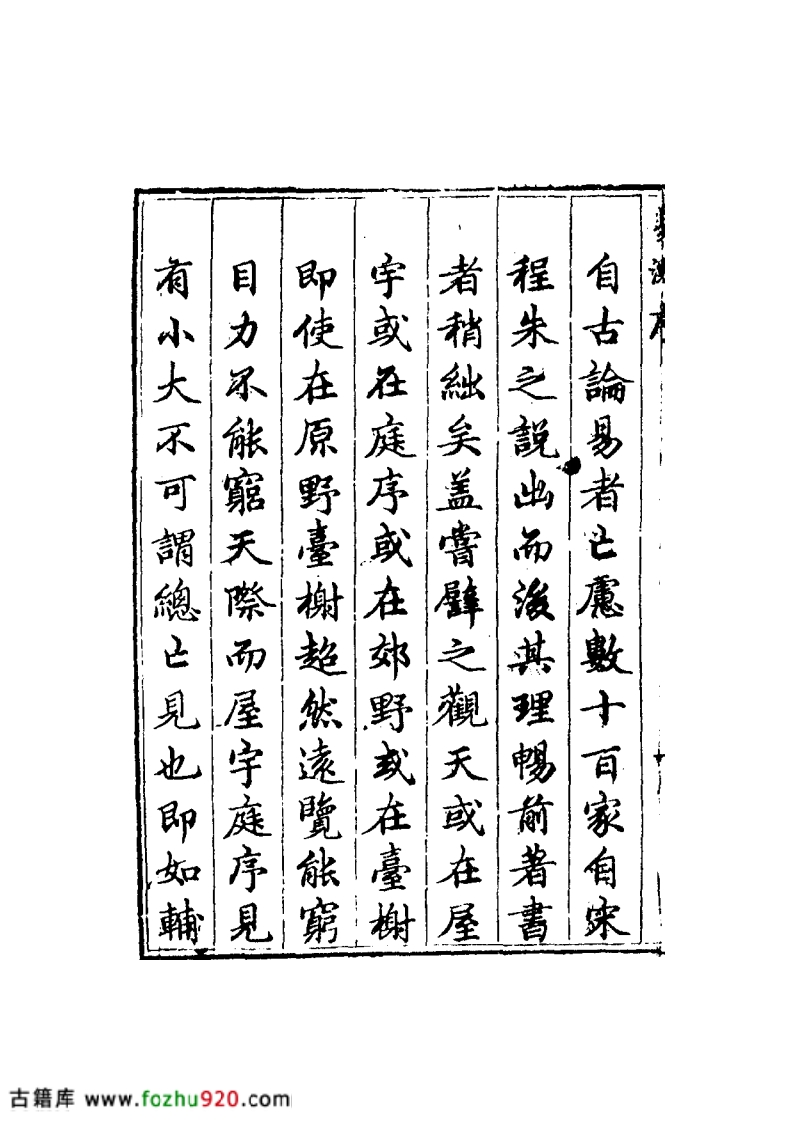 自古論易者亡慮數十百家自宋
程朱之説出而後其理暢前著書
者稍絀矣盖嘗譬之觀天或在屋
宇或在庭序或在郊野或在臺榭
即使在原野臺榭超然遠覽能窮
目力不能窮天際而屋宇庭序見
有小大不可謂總亡見也即如輔
古籍库 www.fozhu920.com